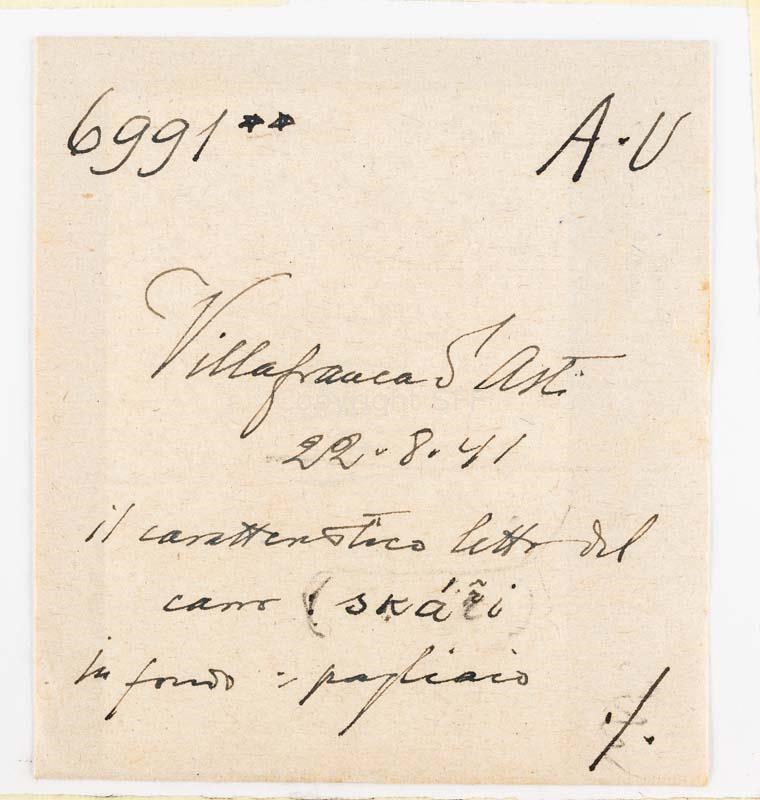 6991**
A.U
Villafranca d'Asti
22.8.41
il caratteristico letto del
carro : (skář̃i)
in fondo = pagliaio
./.